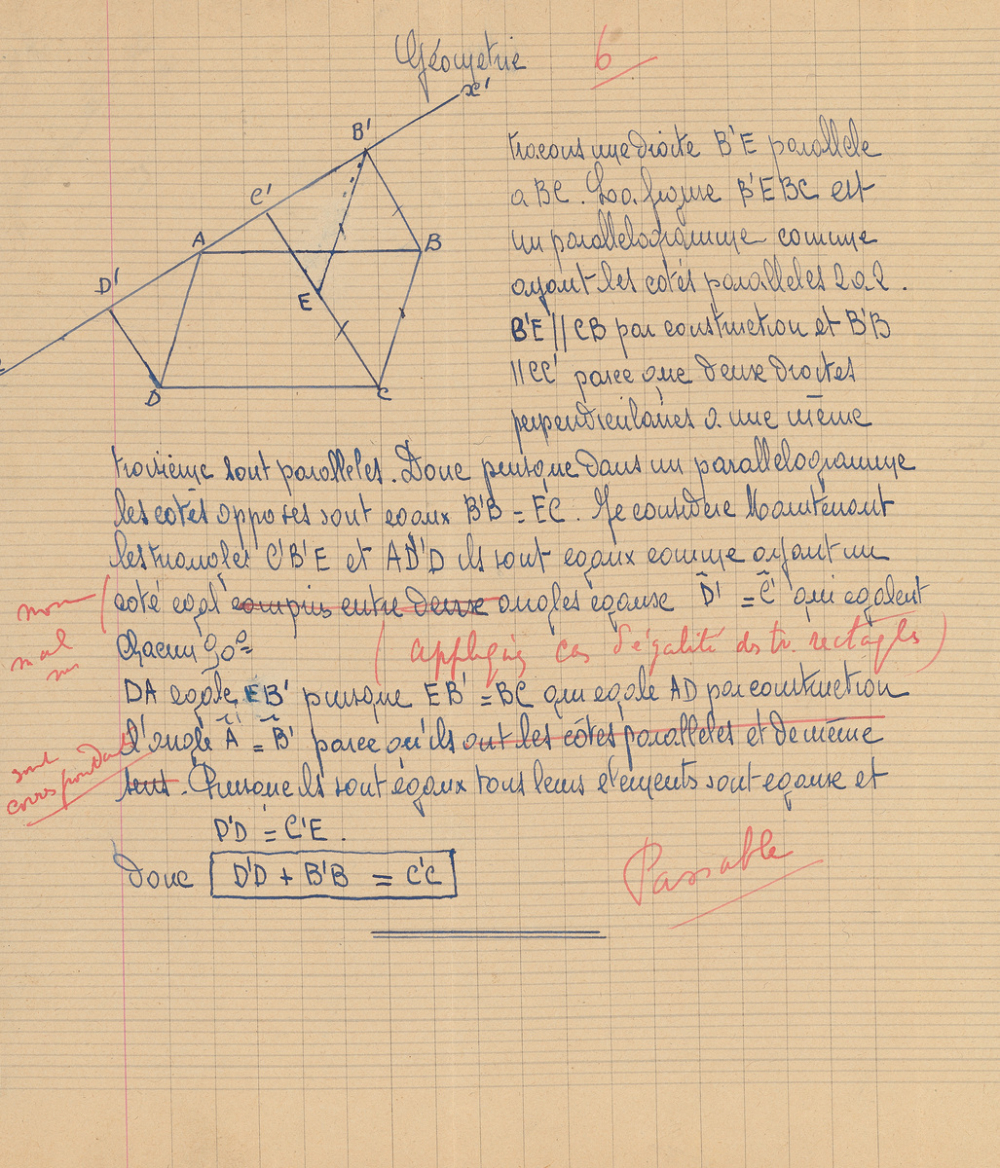 Géometrie
6
x'
B'
C'
A
B
D'
E
D
C
tracons une droite B'E parallele
a BC. La figure B'EBC est
un parallelogramme comme
ayant les cotés paralleles 2 a 2.
B'E // CB par construction et B'B
// CC' parce que deux droites
perpendiculaires a une même
troisième sont paralleles. Donc puisque dans un parallelogramme
les cotés opposes sont egaux B'B = EC. Je considere Maintenant
les triangles C'B'E et AD'D ils sont egaux comme ayant un
coté egal compris entre deux angles égaux D' = C' qui egalent
chacun 90°
non
mal
(appliquez cas d'égalité des tr. rectagles)
DA egale EB' puisque EB' = BC qui egale AD par construction
L'angle A = B' parce qu'ils ont les côtés paralleles et de même
sens. Puisque ils sont égaux tous leurs elements sont egaux et
sont
correspondants
D'D = C'E.
Donc D'D + B'B = C'C
Passable